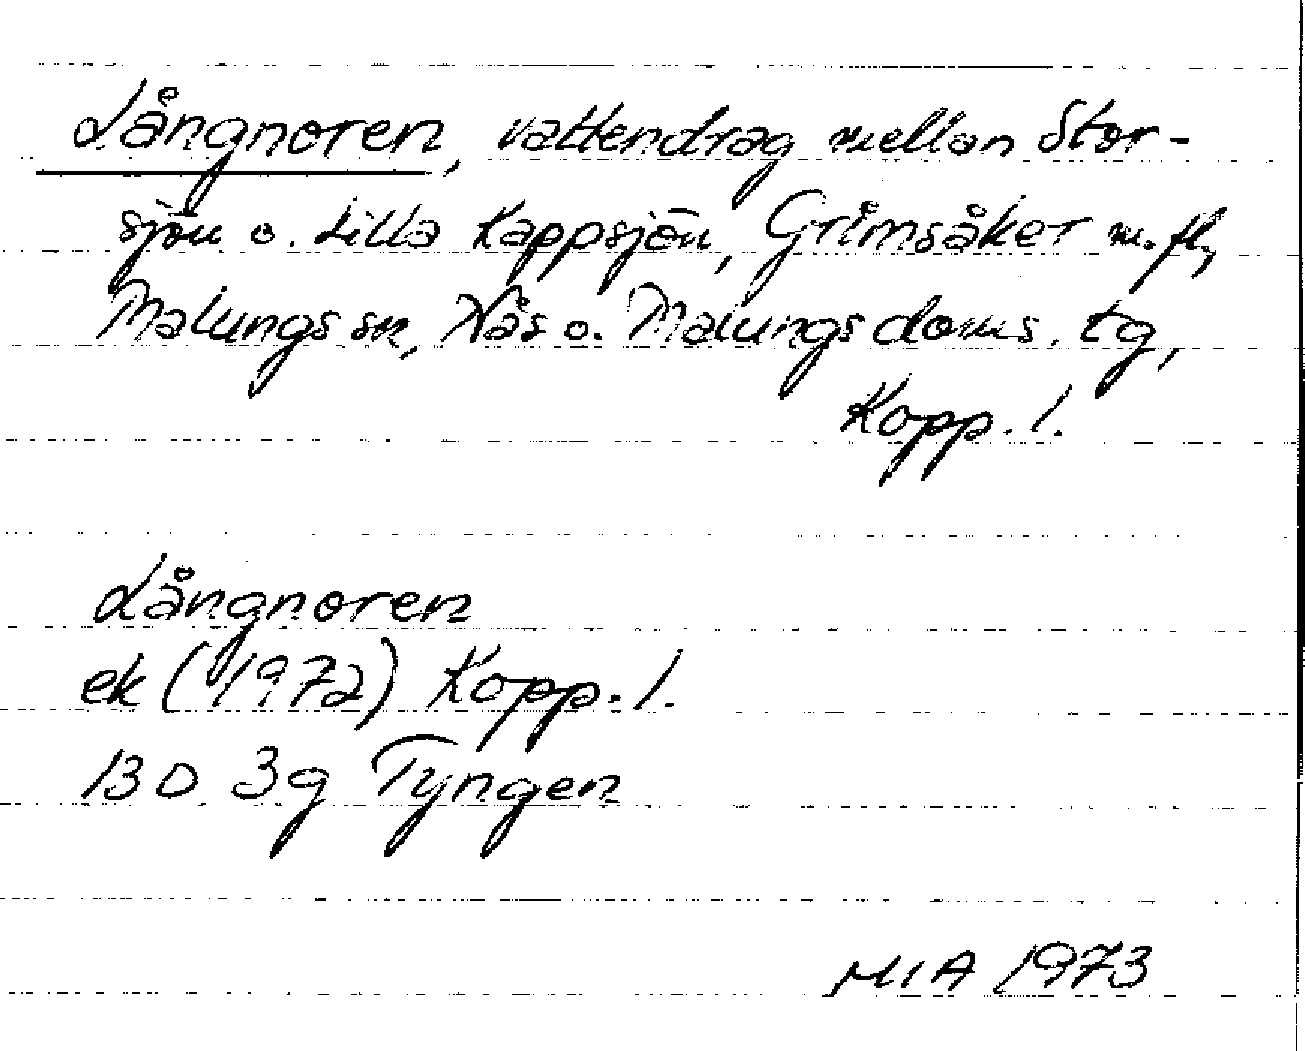 Långnoren, vattendrag mellan Stor-
sjön o. Lilla Kappsjön, Grimsåker m.fl,
Malungs sn, Nås o. Malungs doms. tg,
Kopp. l.
Långnoren
ek (1972) Kopp. l.
13 D 3g Tyngen
MIA 1973